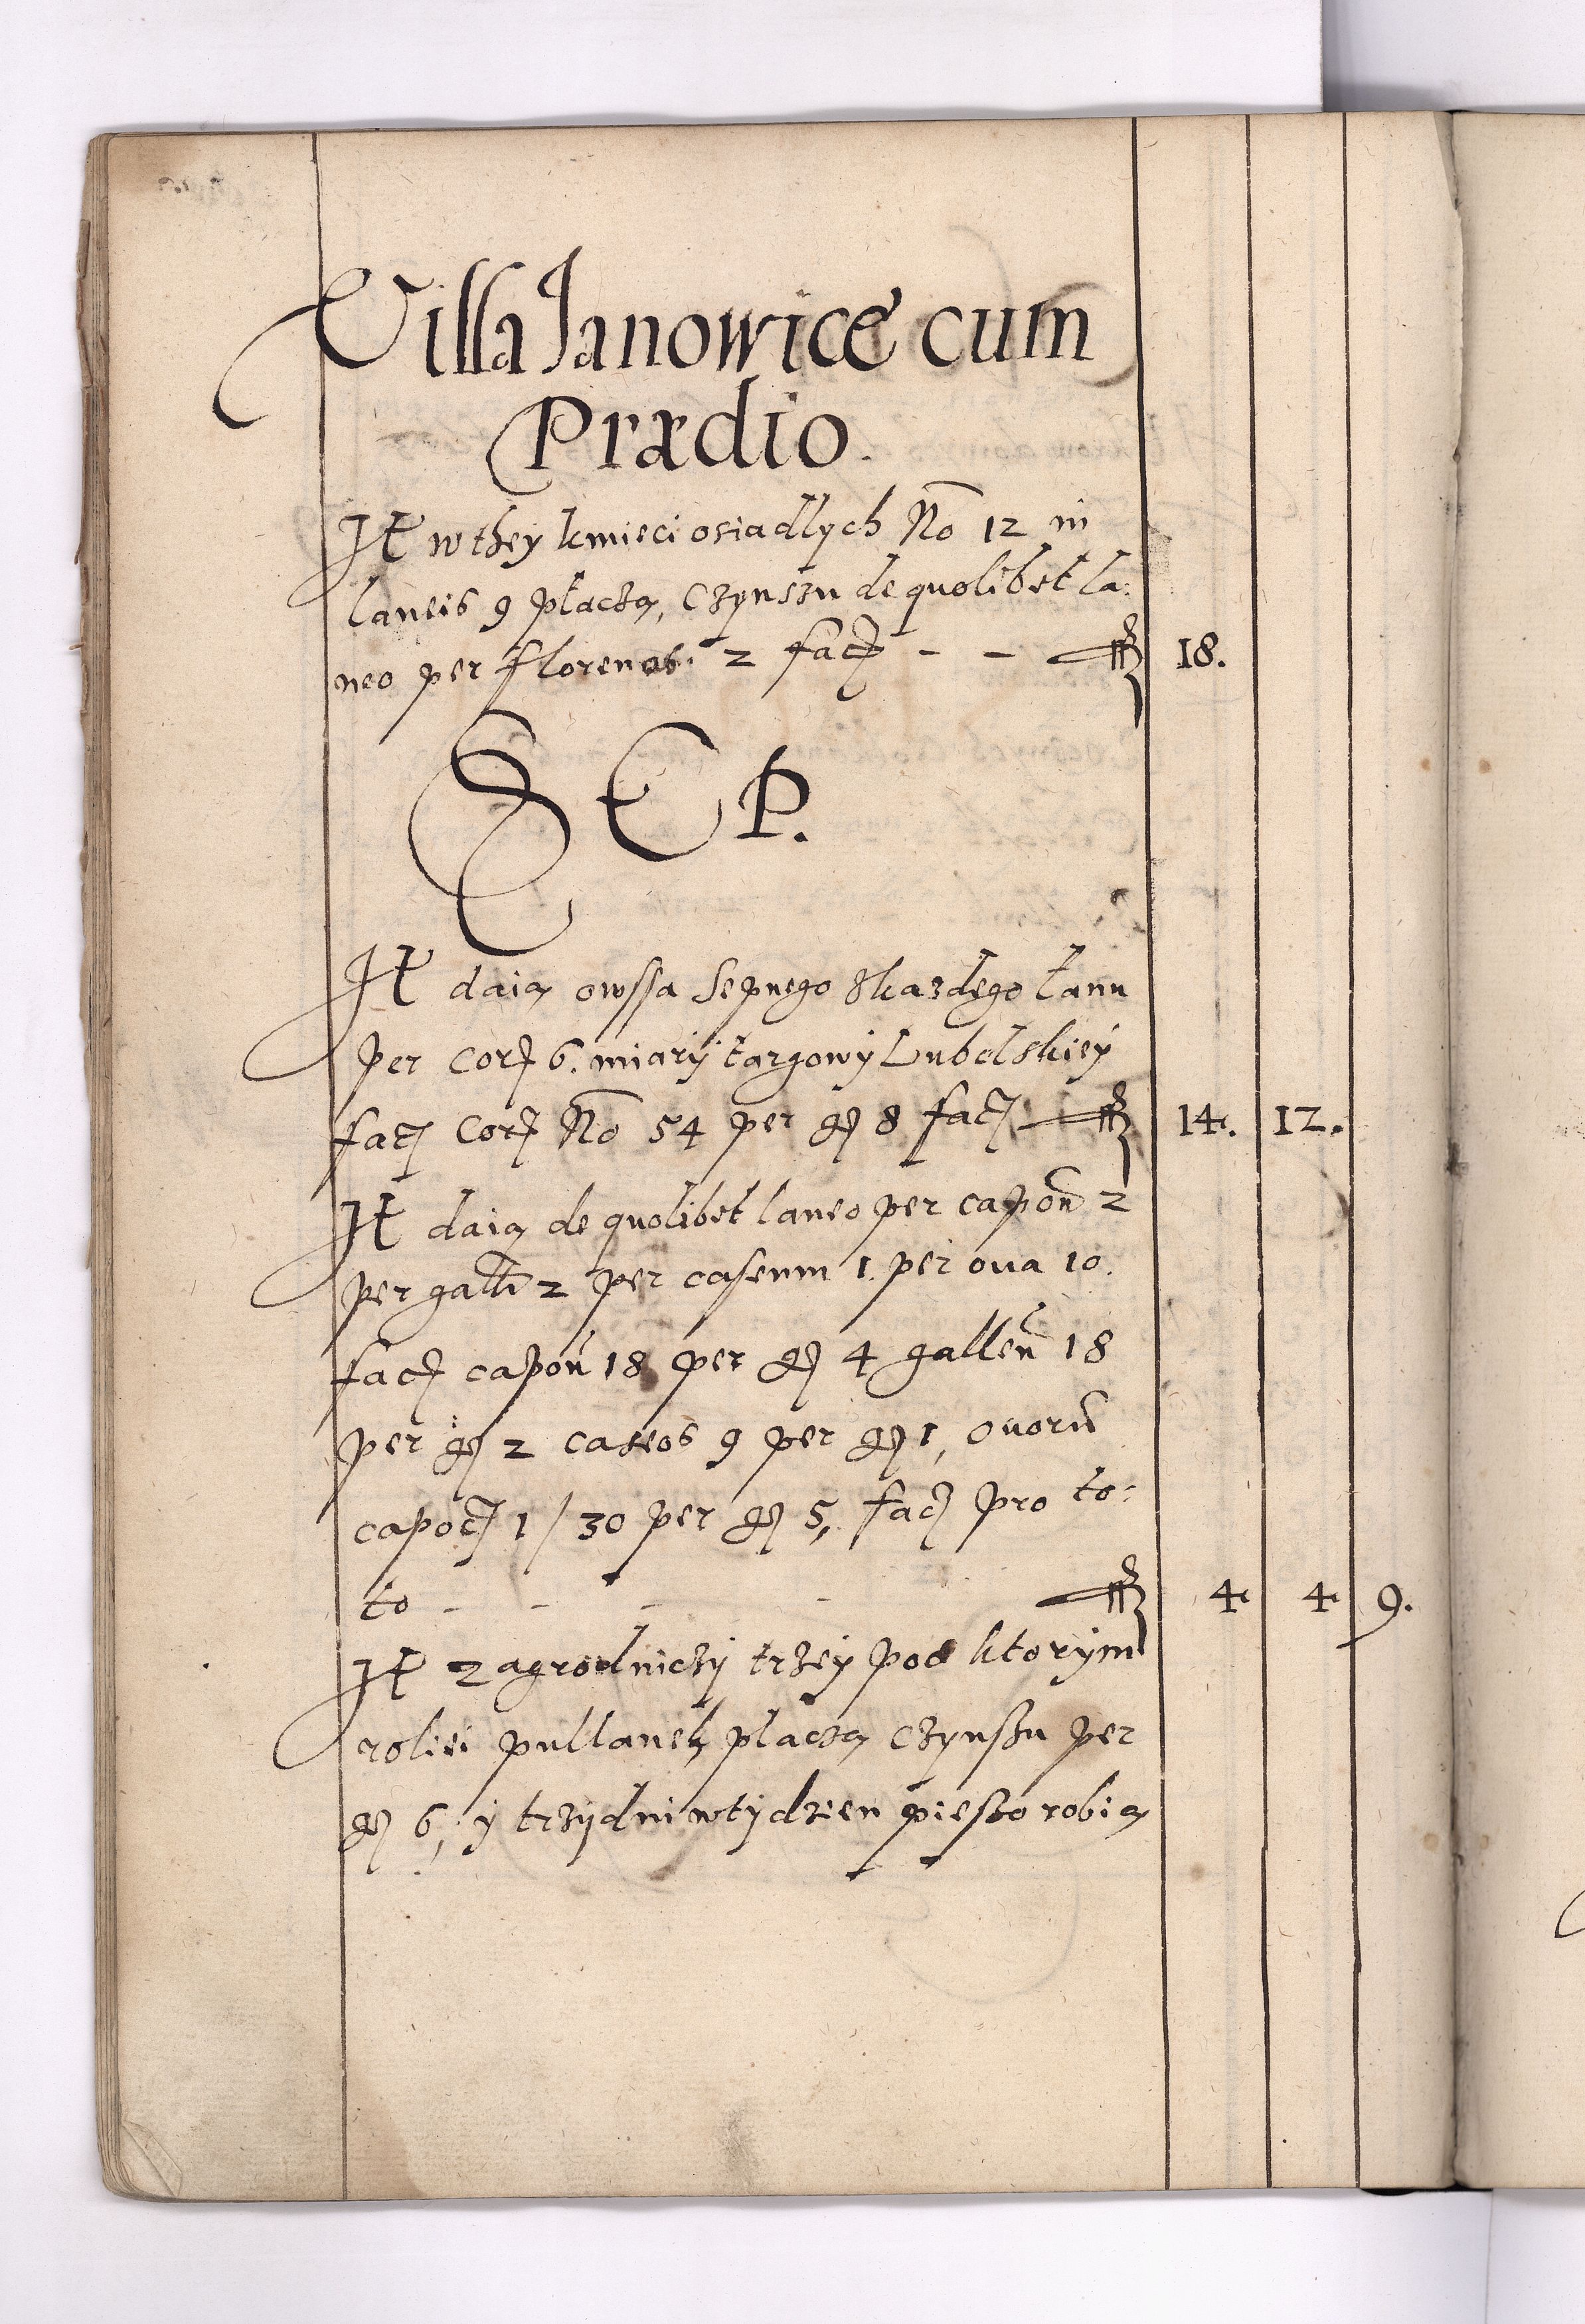 Villa Janowice cum
Prædio.
It w they kmieci osiadlych No 12 in
laneis 9 płaczą, Czynszu de quolibet la:
neo per florenos. 2 fac̃ – – fl 18.
SEP.
It daią owssa Sepnego zkazdego łanu
per cor̃ 6. miarÿ targowÿ Lubelskieÿ
fac̃ Cor̃ No 54 per g̃ 8 fac̃ fl 14. 12.
It daią de quolibet laneo per capon̄ 2
per gall̄ 2 per caseum 1. per oua 10.
fac̃ capon̄ 18 per g̃ 4 gallen̄ 18
per g̃ 2 caseos 9 per g̃ 1, ouorū
capoc̃ 1/30 per g̃ 5, fac̃ pro to:
to – – – – fl 4 4 9.
It zagrodniczÿ trzeÿ pod ktorÿm
roliei pullanek płaczą czynszu per
g̃ 6, ÿ trzÿ dni w tÿdzien pieszo robią